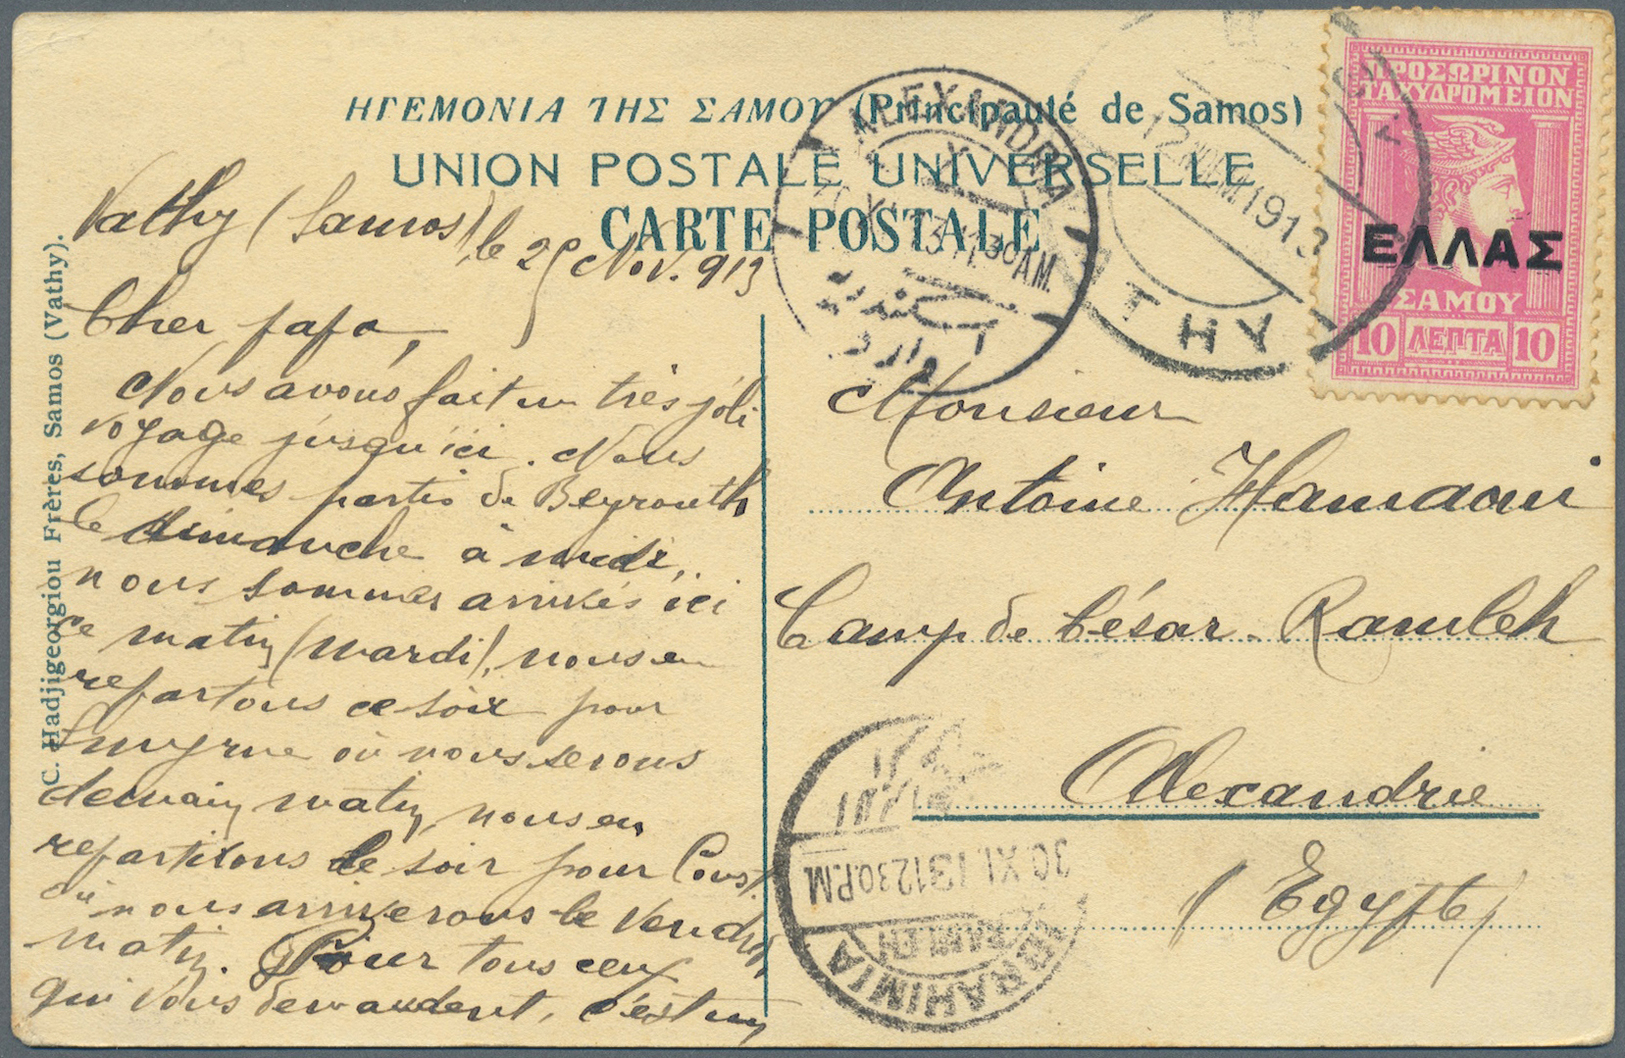 ΗΓΕΜΟΝΙΑ ΤΗΣ ΣΑΜΟΥ (Principauté de Samos)
UNION POSTALE UNIVERSELLE
CARTE POSTALE
C. Hadjigeorgiou Frères, Samos (Vathy).
Vathy (Samos), le 25 Nov. 913
Cher papa,
Nous avons fait un très joli
voyage jusqu'ici. Nous
sommes partis de Beyrouth
le dimanche à midi,
nous sommes arrivés ici
ce matin (mardi), nous en
repartons ce soir pour
Smyrne où nous serons
demain matin, nous en
repartirons le soir pour Const.
où nous arriverons le vendredi
matin. Pour tous ceux
qui vous demandent, c'est un
Monsieur
Antoine Hamaoui
Camp de César. Ramleh
Alexandrie
(Egypte)
ΠΡΟΣΩΡΙΝΟΝ
ΤΑΧΥΔΡΟΜΕΙΟΝ
ΕΛΛΑΣ
ΣΑΜΟΥ
10 ΛΕΠΤΑ 10
ALEXANDRIA
XI 13 11 30 AM.
اسكندرية
وارد
12 ΝΟΕΜ 1913
ΑΘΗΥ
30.XI.13 12 30.P.M
RAMLEH
IBRAHIMIA